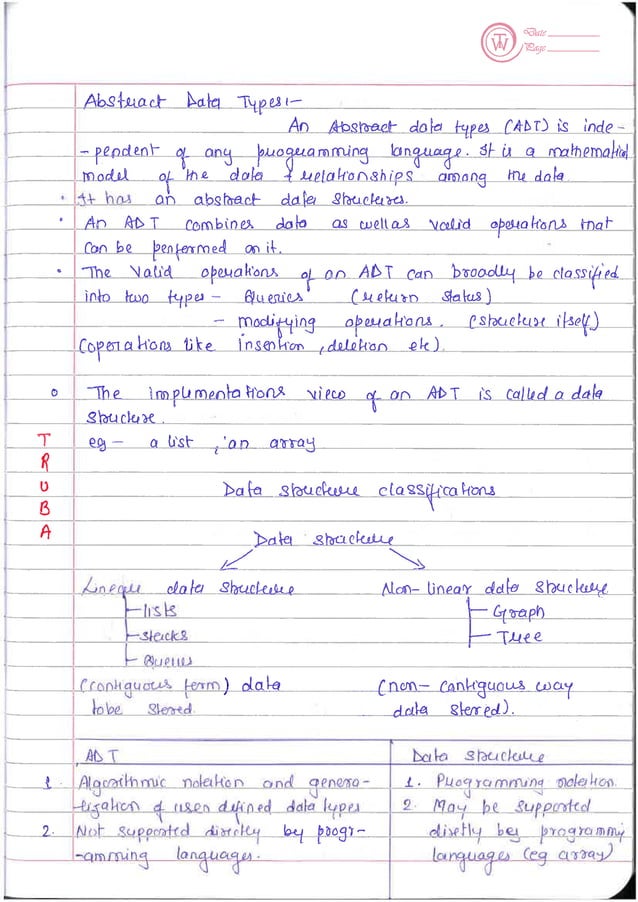 TW
Date
Page
Abstract Data Types:-
An Abstract data types (ADT) is inde-
-pendent of any programming language. It is a mathematical
model of the data & relationships among the data.
• It has an abstract data structures.
• An ADT combines data as well as valid operations that
can be performed on it.
• The Valid operations of an ADT can broadly be classified
into two types - Queries (return status)
- modifying operations. (structure itself)
(operations like insention, deletion etc).
o The implementations view of an ADT is called a data
structure.
eg - a list, an array
T
R
U
B
A
Data structure classifications
Data structure
Linear data structure Non-linear data structure
lists Graph
stacks Tree
Queues
(contiguous form) data (non- contiguous way
to be stored. data stored).
ADT Data structure
1. Algorithmic notation and genera- 1. Programming notation.
-lization of user defined data types 2. May be supported
2. Not supported directly by progr- diretly by programming
-amming languages. languages (eg array)